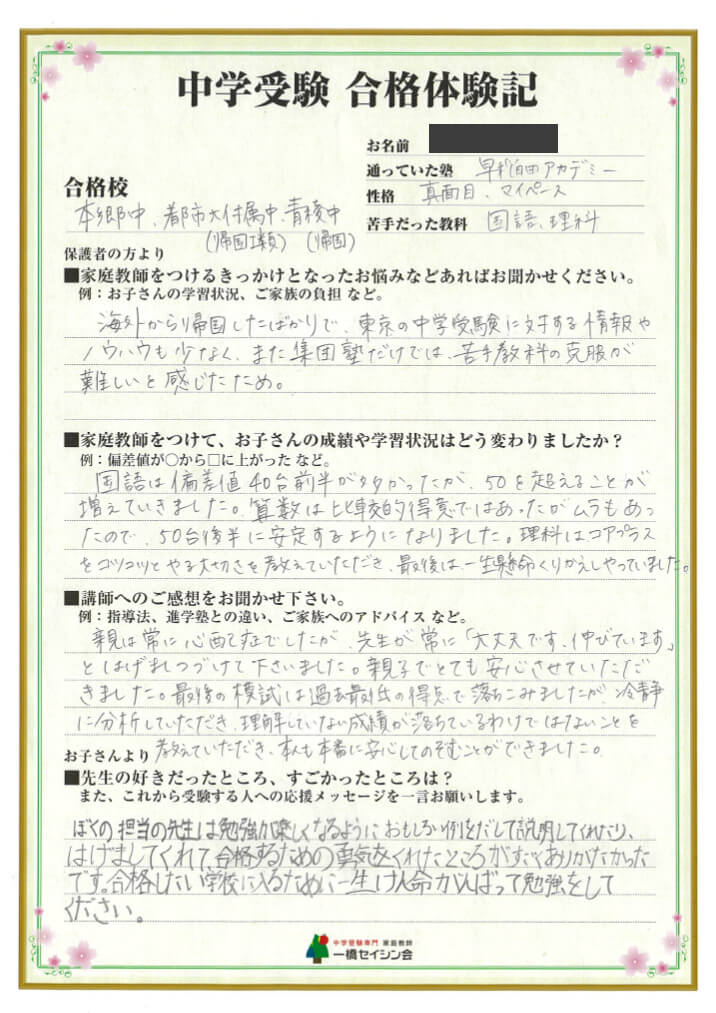 中学受験 合格体験記
お名前
通っていた塾 早稲田アカデミー
合格校
性格 真面目、マイペース
本郷中、都市大付属中、青稜中
(帰国I類) (帰国)
苦手だった教科 国語、理科
保護者の方より
■家庭教師をつけるきっかけとなったお悩みなどあればお聞かせください。
例:お子さんの学習状況、ご家族の負担 など。
海外から帰国したばかりで、東京の中学受験に対する情報や
ノウハウも少なく、また集団塾だけでは、苦手教科の克服が
難しいと感じたため。
■家庭教師をつけて、お子さんの成績や学習状況はどう変わりましたか?
例:偏差値が○から□に上がった など。
国語は偏差値40台前半が多かったが、50を超えることが
増えていきました。算数は比較的得意ではあったがムラもあっ
たので、50台後半に安定するようになりました。理科はコアプラス
をコツコツとやる大切さを教えていただき、最後は一生懸命くりかえしやっていました。
■講師へのご感想をお聞かせ下さい。
例:指導法、進学塾との違い、ご家族へのアドバイス など。
親は常に心配症でしたが、先生が常に「大丈夫です、伸びています」
とはげましつづけて下さいました。親子でとても安心させていただ
きました。最後の模試は過去最低の得点で落ちこみましたが、冷静
に分析していただき、理解していない成績が落ちているわけではないことを
教えていただき、本人も本番に安心してのぞむことができました。
お子さんより
■先生の好きだったところ、すごかったところは?
また、これから受験する人への応援メッセージを一言お願いします。
ぼくの担当の先生は勉強が楽しくなるようにおもしろい例をだして説明してくれたり、
はげましてくれて、合格するための勇気をくれたところがすごくありがたかった
です。合格したい学校に入るために一生けん命がんばって勉強をして
ください。
中学受験専門 家庭教師
一橋セイシン会